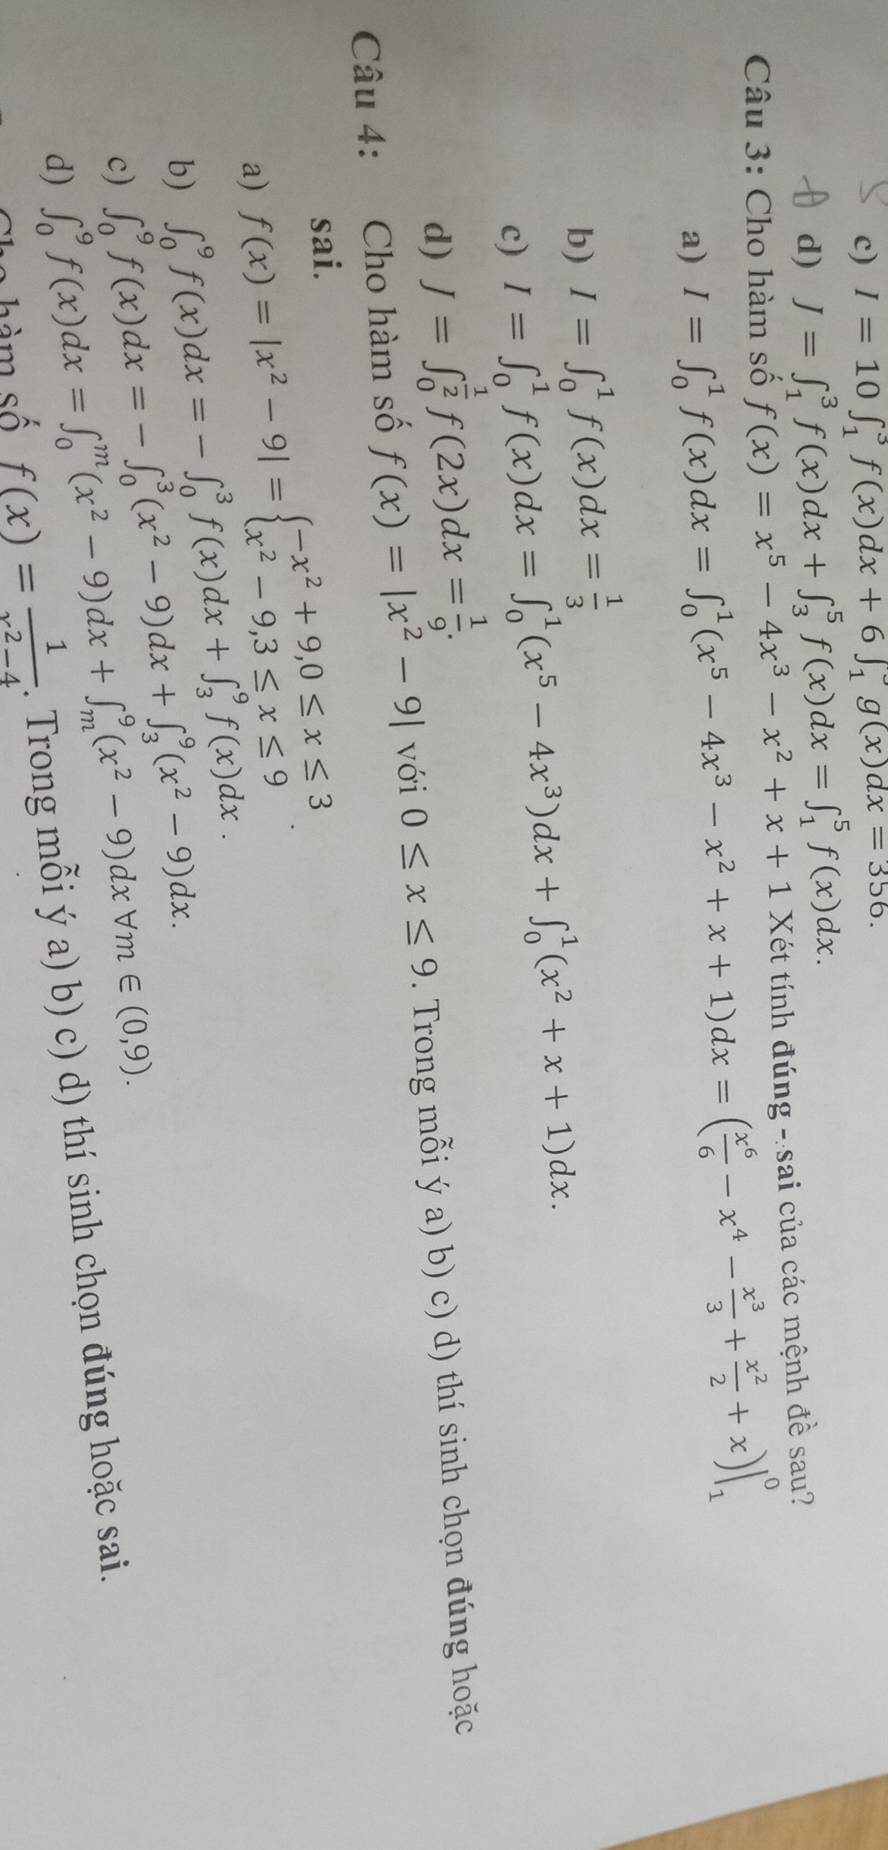 c) I = 10∫₁³ f(x)dx + 6∫₁³ g(x)dx = 356.
d) J = ∫₁³ f(x)dx + ∫₃⁵ f(x)dx = ∫₁⁵ f(x)dx.
Câu 3: Cho hàm số f(x) = x⁵ − 4x³ − x² + x + 1 Xét tính đúng - sai của các mệnh đề sau?
a) I = ∫₀¹ f(x)dx = ∫₀¹(x⁵ − 4x³ − x² + x + 1)dx = (x⁶/6 − x⁴ − x³/3 + x²/2 + x)|₁⁰
b) I = ∫₀¹ f(x)dx = 1/3
c) I = ∫₀¹ f(x)dx = ∫₀¹(x⁵ − 4x³)dx + ∫₀¹(x² + x + 1)dx.
d) J = ∫₀^(1/2) f(2x)dx = 1/9.
Câu 4: Cho hàm số f(x) = |x² − 9| với 0 ≤ x ≤ 9. Trong mỗi ý a) b) c) d) thí sinh chọn đúng hoặc
sai.
a) f(x) = |x² − 9| = { −x² + 9, 0 ≤ x ≤ 3
x² − 9, 3 ≤ x ≤ 9 .
b) ∫₀⁹ f(x)dx = − ∫₀³ f(x)dx + ∫₃⁹ f(x)dx .
c) ∫₀⁹ f(x)dx = − ∫₀³(x² − 9)dx + ∫₃⁹(x² − 9)dx.
d) ∫₀⁹ f(x)dx = ∫₀ᵐ(x² − 9)dx + ∫ₘ⁹(x² − 9)dx ∀m ∈ (0,9).
Cho hàm số f(x) = 1/(x²−4). Trong mỗi ý a) b) c) d) thí sinh chọn đúng hoặc sai.